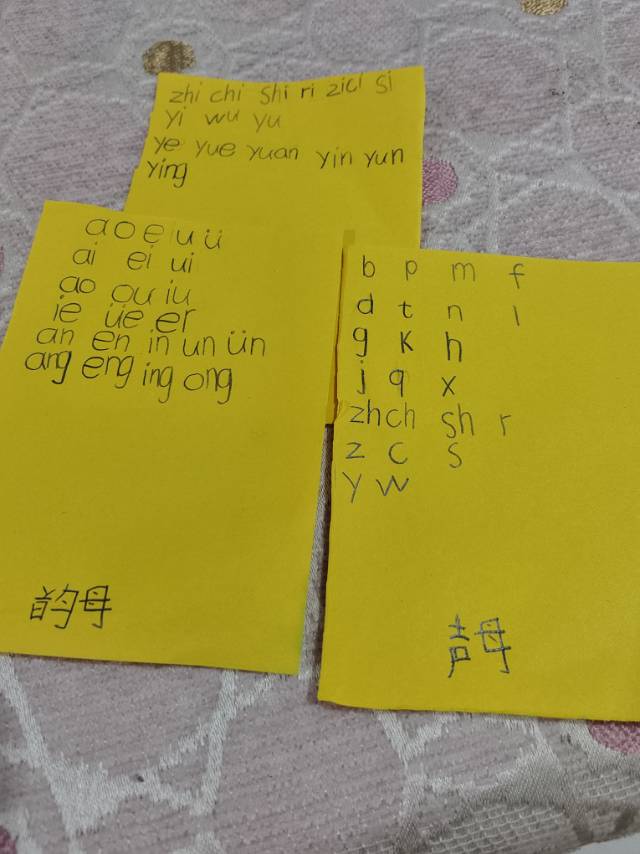 zhi chi shi ri zi ci si
yi wu yu
ye yue yuan yin yun
ying
a o e i u ü
ai ei ui
ao ou iu
ie üe er
an en in un ün
ang eng ing ong
韵母
b p m f
d t n l
g k h
j q x
zh ch sh r
z c s
y w
声母